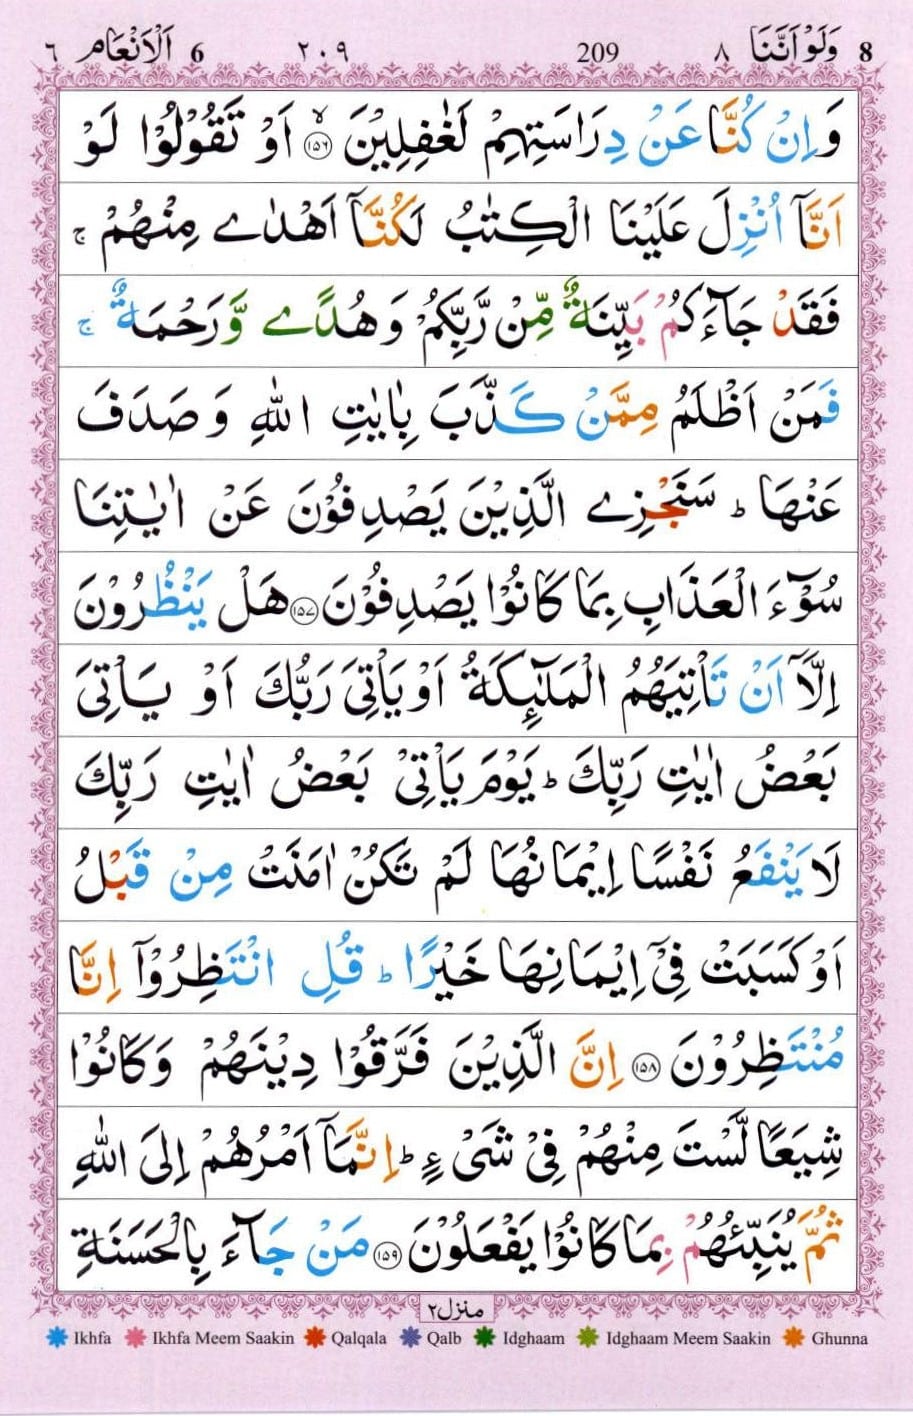 8 وَلَوْ اَنَّنَا ٨ 209 ٢٠٩ 6 اَلْاَنْعَام ٦
وَاِنْ كُنَّا عَنْ دِرَاسَتِهِمْ لَغٰفِلِيْنَ ۙ﴿۱۵۶﴾ اَوْ تَقُوْلُوْا لَوْ
اَنَّاۤ اُنْزِلَ عَلَيْنَا الْكِتٰبُ لَكُنَّاۤ اَهْدٰے مِنْهُمْ ۚ
فَقَدْ جَآءَكُمْ بَيِّنَةٌ مِّنْ رَّبِّكُمْ وَهُدًے وَّرَحْمَةٌ ۚ
فَمَنْ اَظْلَمُ مِمَّنْ كَذَّبَ بِاٰيٰتِ اللّٰهِ وَصَدَفَ
عَنْهَا ؕ سَنَجْزِے الَّذِيْنَ يَصْدِفُوْنَ عَنْ اٰيٰتِنَا
سُوْٓءَ الْعَذَابِ بِمَا كَانُوْا يَصْدِفُوْنَ ﴿۱۵۷﴾ هَلْ يَنْظُرُوْنَ
اِلَّاۤ اَنْ تَاْتِيَهُمُ الْمَلٰٓئِكَةُ اَوْ يَاْتِىَ رَبُّكَ اَوْ يَاْتِىَ
بَعْضُ اٰيٰتِ رَبِّكَ ؕ يَوْمَ يَاْتِىْ بَعْضُ اٰيٰتِ رَبِّكَ
لَا يَنْفَعُ نَفْسًا اِيْمَانُهَا لَمْ تَكُنْ اٰمَنَتْ مِنْ قَبْلُ
اَوْ كَسَبَتْ فِىْۤ اِيْمَانِهَا خَيْرًا ؕ قُلِ انْتَظِرُوْۤا اِنَّا
مُنْتَظِرُوْنَ ﴿۱۵۸﴾ اِنَّ الَّذِيْنَ فَرَّقُوْا دِيْنَهُمْ وَكَانُوْا
شِيَعًا لَّسْتَ مِنْهُمْ فِىْ شَىْءٍ ؕ اِنَّمَاۤ اَمْرُهُمْ اِلَى اللّٰهِ
ثُمَّ يُنَبِّئُهُمْ بِمَا كَانُوْا يَفْعَلُوْنَ ﴿۱۵۹﴾ مَنْ جَآءَ بِالْحَسَنَةِ
منزل ٢
Ikhfa Ikhfa Meem Saakin Qalqala Qalb Idghaam Idghaam Meem Saakin Ghunna